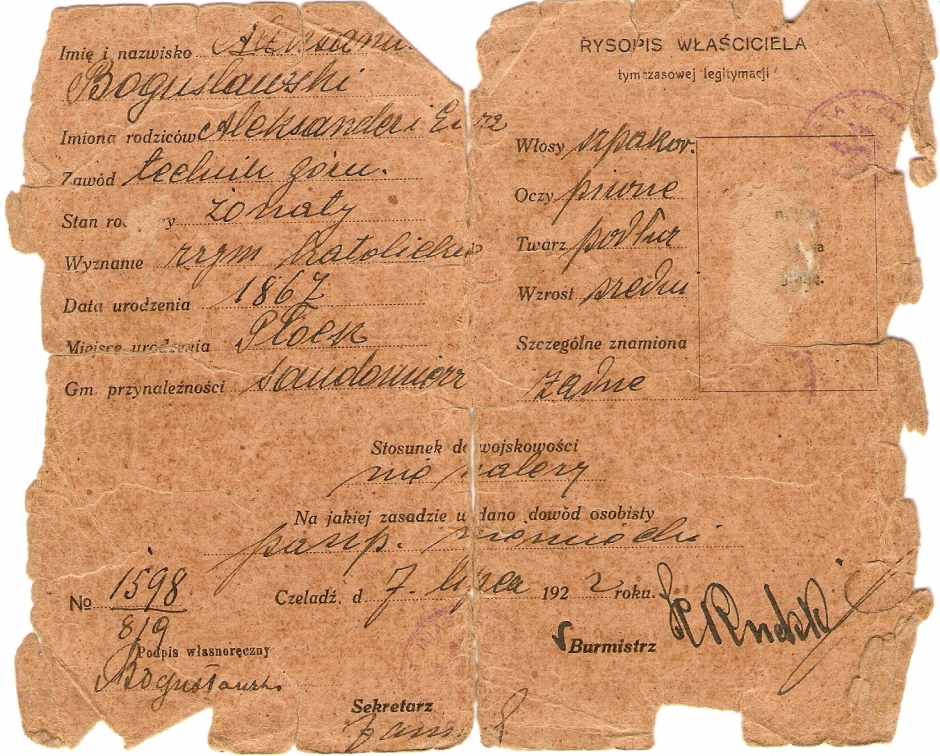 Imię i nazwisko
Bogusławski
Imiona rodziców Aleksander i
Zawód technik górn.
Stan żonaty
Wyznanie rzym katolickie
Data urodzenia 1867
Miejsce urodzenia Płock
Gm. przynależności Sandomierz
RYSOPIS WŁAŚCICIELA
tymczasowej legitymacji
Włosy szpakow.
Oczy piwne
Twarz podłuż
Wzrost średni
Szczególne znamiona
żadne
Stosunek do wojskowości
nie należy
Na jakiej zasadzie wydano dowód osobisty
paszp. niemiecki
№ 1598
8/9
Czeladź, d. 7. lipca 1922 roku.
Podpis własnoręczny
Bogusławski
Burmistrz
Sekretarz